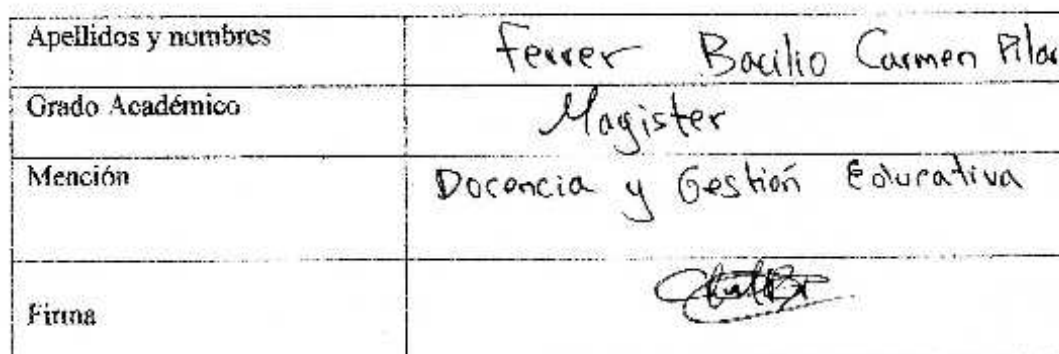 Apellidos y nombres Ferrer Bacilio Carmen Pilar
Grado Académico Magister
Mención Docencia y Gestión Educativa
Firma